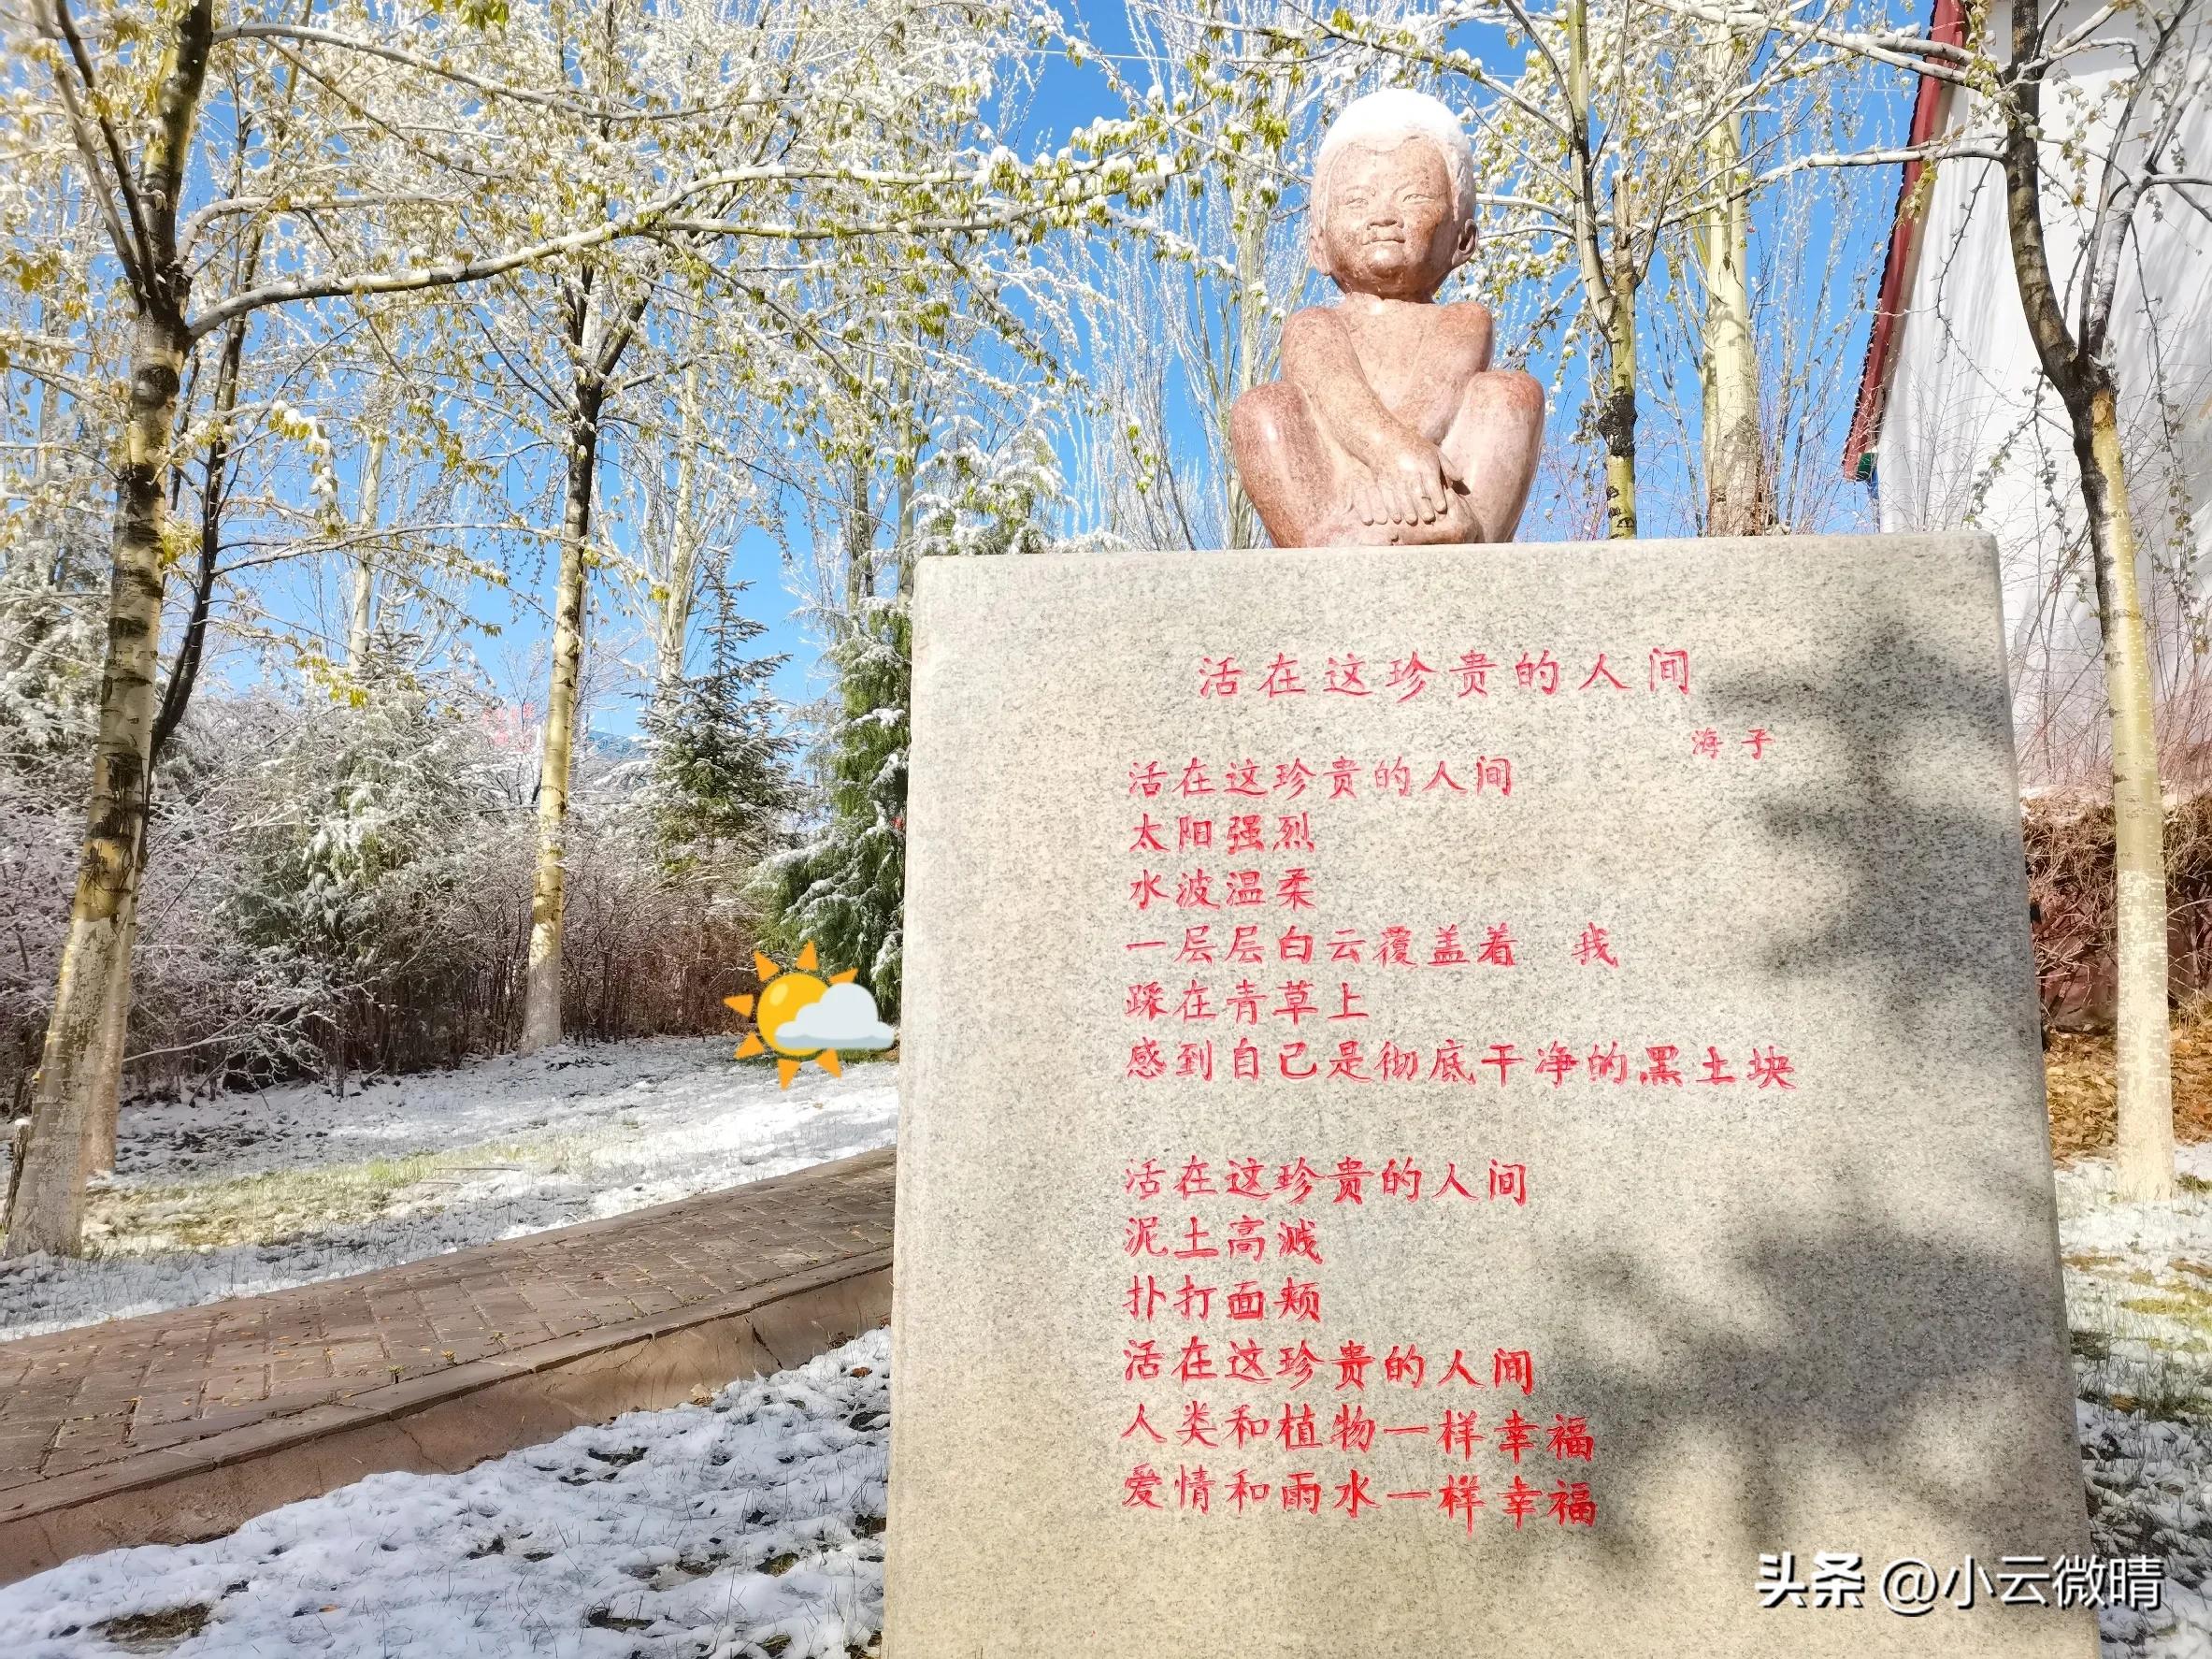 活在这珍贵的人间
海子
活在这珍贵的人间
太阳强烈
水波温柔
一层层白云覆盖着　我
踩在青草上
感到自己是彻底干净的黑土块
活在这珍贵的人间
泥土高溅
扑打面颊
活在这珍贵的人间
人类和植物一样幸福
爱情和雨水一样幸福
头条 @小云微晴